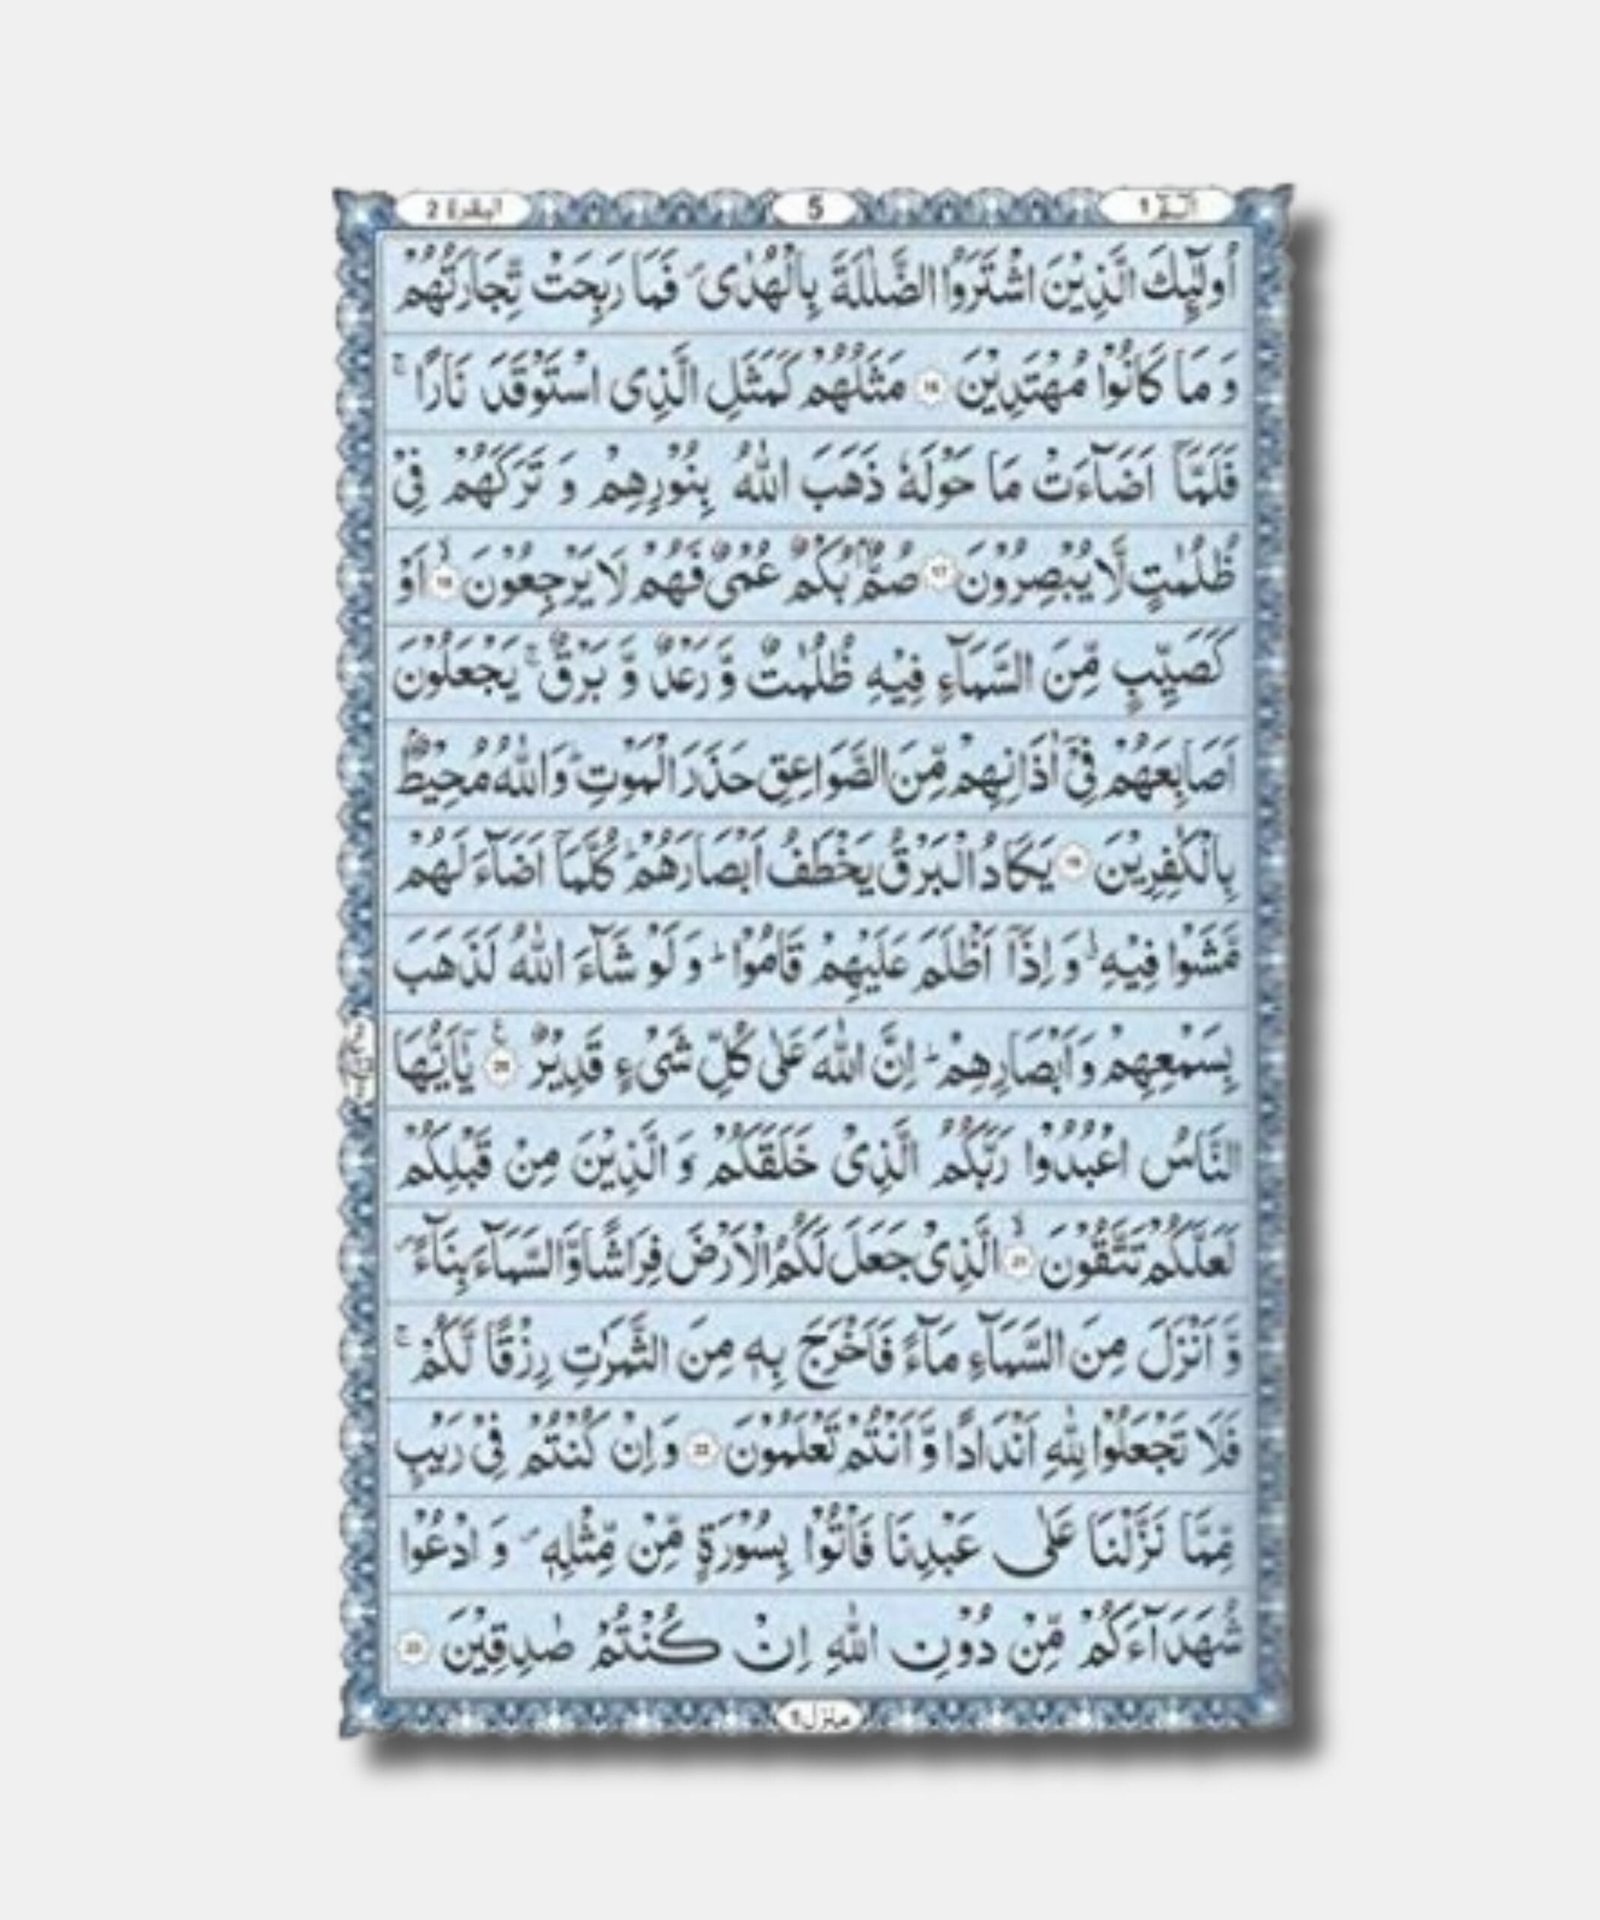 الٓمّٓ 1
5
البقرة 2
اُولٰٓئِكَ الَّذِيْنَ اشْتَرَوُا الضَّلٰلَةَ بِالْهُدٰى ۪ فَمَا رَبِحَتْ تِّجَارَتُهُمْ
وَ مَا كَانُوْا مُهْتَدِيْنَ 16 مَثَلُهُمْ كَمَثَلِ الَّذِى اسْتَوْقَدَ نَارًا ۚ
فَلَمَّاۤ اَضَآءَتْ مَا حَوْلَهٗ ذَهَبَ اللّٰهُ بِنُوْرِهِمْ وَ تَرَكَهُمْ فِیْ
ظُلُمٰتٍ لَّا يُبْصِرُوْنَ 17 صُمٌّۢ بُكْمٌ عُمْیٌ فَهُمْ لَا يَرْجِعُوْنَ ۙ 18 اَوْ
كَصَيِّبٍ مِّنَ السَّمَآءِ فِيْهِ ظُلُمٰتٌ وَّ رَعْدٌ وَّ بَرْقٌ ۚ يَجْعَلُوْنَ
اَصَابِعَهُمْ فِیْۤ اٰذَانِهِمْ مِّنَ الصَّوَاعِقِ حَذَرَ الْمَوْتِ ؕ وَاللّٰهُ مُحِيْطٌۢ
بِالْكٰفِرِيْنَ 19 يَكَادُ الْبَرْقُ يَخْطَفُ اَبْصَارَهُمْ ؕ كُلَّمَاۤ اَضَآءَ لَهُمْ
مَّشَوْا فِيْهِ ۙ وَ اِذَاۤ اَظْلَمَ عَلَيْهِمْ قَامُوْا ؕ وَ لَوْ شَآءَ اللّٰهُ لَذَهَبَ
بِسَمْعِهِمْ وَ اَبْصَارِهِمْ ؕ اِنَّ اللّٰهَ عَلٰى كُلِّ شَیْءٍ قَدِيْرٌ 20 يٰۤاَيُّهَا
النَّاسُ اعْبُدُوْا رَبَّكُمُ الَّذِیْ خَلَقَكُمْ وَ الَّذِيْنَ مِنْ قَبْلِكُمْ
لَعَلَّكُمْ تَتَّقُوْنَ ۙ 21 الَّذِیْ جَعَلَ لَكُمُ الْاَرْضَ فِرَاشًا وَّ السَّمَآءَ بِنَآءً ۪
وَّ اَنْزَلَ مِنَ السَّمَآءِ مَآءً فَاَخْرَجَ بِهٖ مِنَ الثَّمَرٰتِ رِزْقًا لَّكُمْ ۚ
فَلَا تَجْعَلُوْا لِلّٰهِ اَنْدَادًا وَّ اَنْتُمْ تَعْلَمُوْنَ 22 وَ اِنْ كُنْتُمْ فِیْ رَيْبٍ
مِّمَّا نَزَّلْنَا عَلٰى عَبْدِنَا فَاْتُوْا بِسُوْرَةٍ مِّنْ مِّثْلِهٖ ۪ وَ ادْعُوْا
شُهَدَآءَكُمْ مِّنْ دُوْنِ اللّٰهِ اِنْ كُنْتُمْ صٰدِقِيْنَ 23
منزل 1